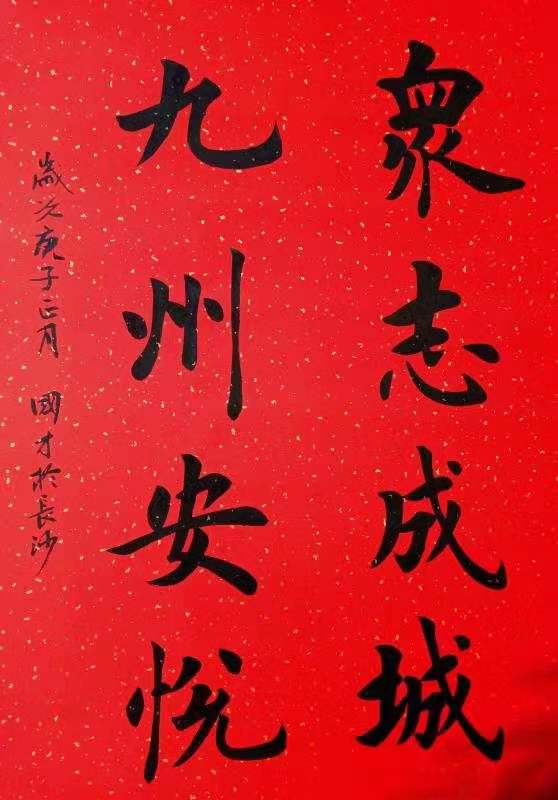 眾志成城
九州安悦
歲次庚子正月 國才於長沙